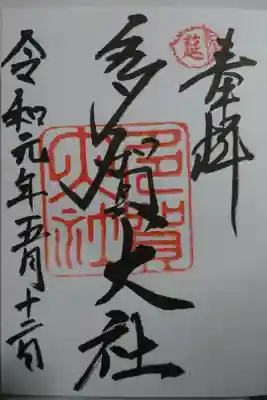 奉拝
延
多賀大社
多賀大社
令和元年五月十二日